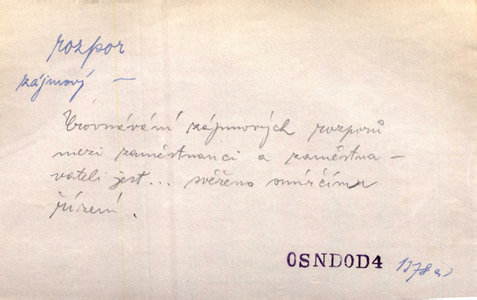 rozpor
zájmový —
Urovnávání zájmových rozporů
mezi zaměstnanci a zaměstna-
vateli jest... svěřeno smírčímu
řízení.
OSNDOD4